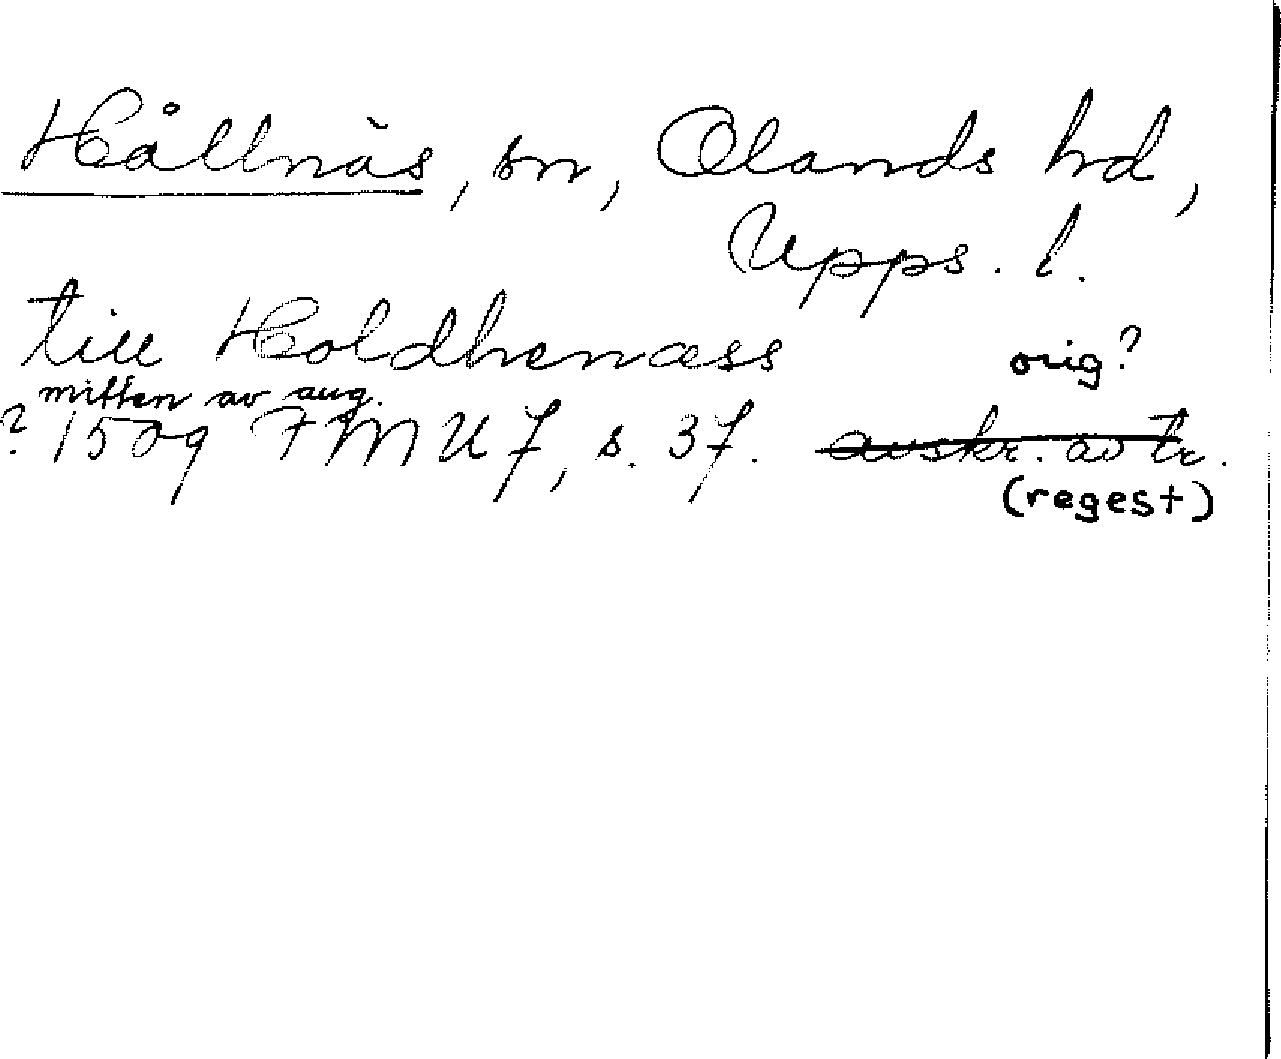 Hållnäs, sn, Olands hd,
Upps. l.
till Holdhenæss orig?
mitten av aug.
? 1509 FMU 7, s. 37. avskr. av tr.
(regest)